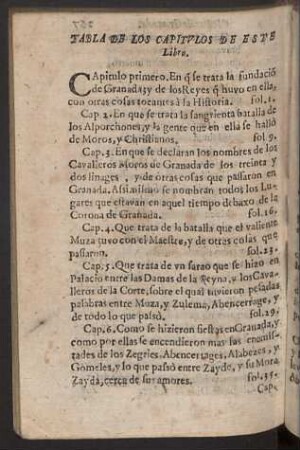 TABLA DE LOS CAPITVLOS DE ESTE
Libro.
CApitulo primero. En q̃ se trata la fundaciõ
de Granada, y de los Reyes q̃ huvo en ella,
con otras cosas tocantes à la Historia. fol. 1.
Cap. 2. En que se trata la sangrienta batalla de
los Alporchones, y la gente que en ella se hallò
de Moros, y Christianos. fol. 9.
Cap. 3. En que se declaran los nombres de los
Cavalleros Moros de Granada de los treinta y
dos linages, y de otras cosas que passaron en
Granada. Assimismo se nombran todos los Lu-
gares que estavan en aquel tiempo debaxo de la
Corona de Granada. fol. 16.
Cap. 4. Que trata de la batalla que el valiente
Muza tuvo con el Maestre, y de otras cosas que
passaron. fol. 23.
Cap. 5. Que trata de vn sarao que se hizo en
Palacio entre las Damas de la Reyna, y los Cava-
lleros de la Corte, sobre el qual tuvieron pesadas
palabras entre Muza, y Zulema, Abencerrage, y
de todo lo que passò. fol. 29.
Cap. 6. Como se hizieron fiestas en Granada, y
como por ellas se encendieron mas las enemis-
tades de los Zegries, Abencerrages, Alabezes, y
Gomeles, y lo que passò entre Zayde, y su Mora
Zayda, cerca de sus amores. fol. 35.
Cap.